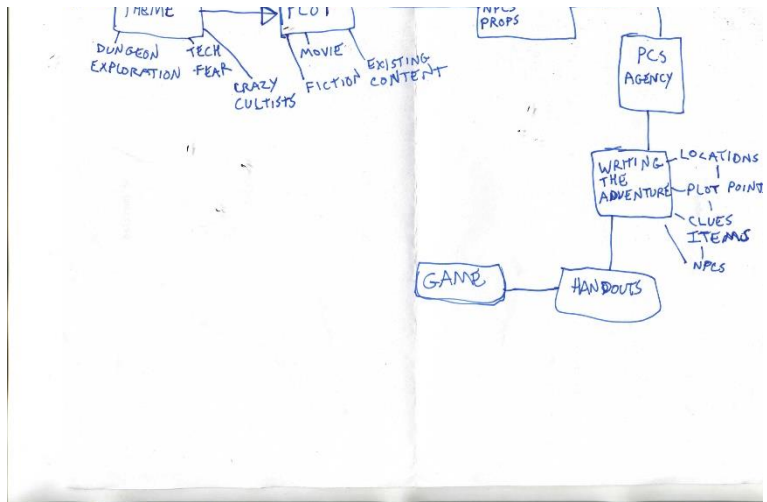 THEME
PLOT
NPCS
PROPS
DUNGEON
EXPLORATION
TECH
FEAR
CRAZY
CULTISTS
MOVIE
FICTION
EXISTING
CONTENT
PCS
AGENCY
WRITING
THE
ADVENTURE
LOCATIONS
PLOT POINT
CLUES
ITEMS
NPCS
GAME
HANDOUTS